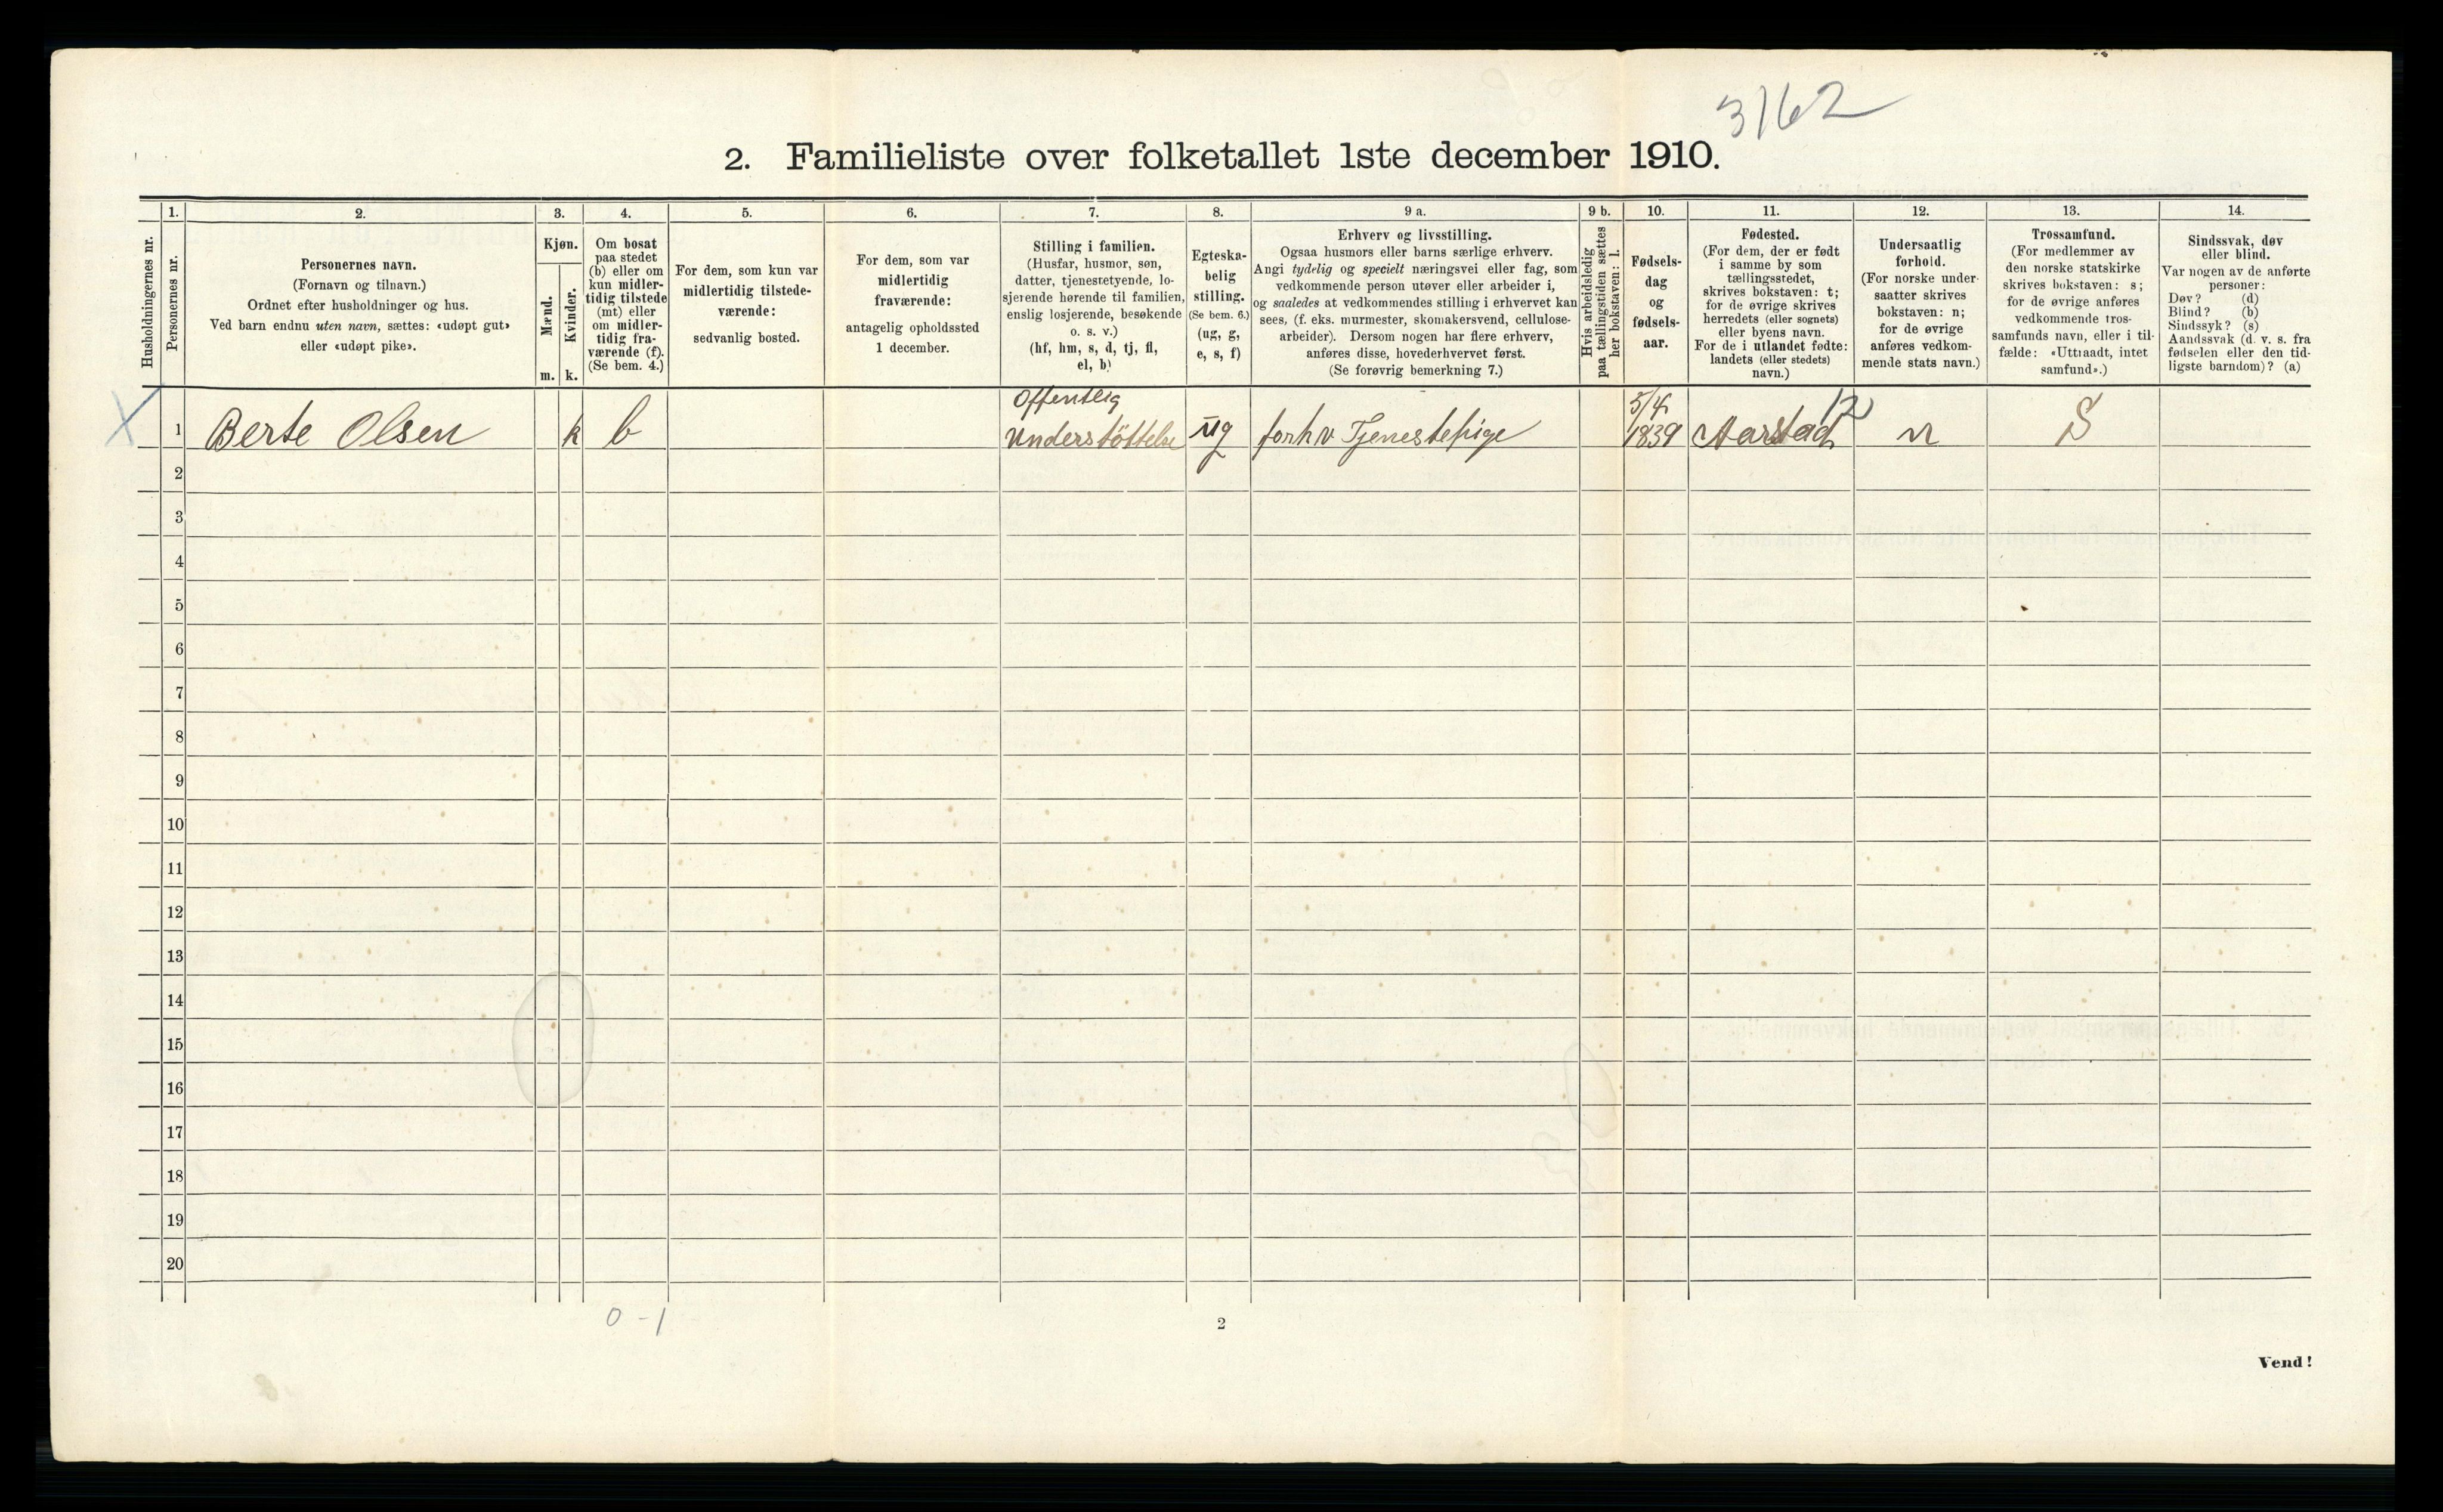 3162
2. Familieliste over folketallet 1ste december 1910.
1. 2. 3. 4. 5. 6. 7. 8. 9 a. 9 b. 10. 11. 12. 13. 14.
Husholdningernes nr.
Personernes nr.
Personernes navn.
(Fornavn og tilnavn.)
Ordnet efter husholdninger og hus.
Ved barn endnu uten navn, sættes: «udøpt gut»
eller «udøpt pike».
Kjøn.
Mænd.
Kvinder.
m. k.
Om bosat
paa stedet
(b) eller om
kun midler-
tidig tilstede
(mt) eller
om midler-
tidig fra-
værende (f).
(Se bem. 4.)
For dem, som kun var
midlertidig tilstede-
værende:
sedvanlig bosted.
For dem, som var
midlertidig
fraværende:
antagelig opholdssted
1 december.
Stilling i familien.
(Husfar, husmor, søn,
datter, tjenestetyende, lo-
sjerende hørende til familien,
enslig losjerende, besøkende
o. s. v.)
(hf, hm, s, d, tj, fl,
el, b)
Egteska-
belig
stilling.
(Se bem. 6.)
(ug, g,
e, s, f)
Erhverv og livsstilling.
Ogsaa husmors eller barns særlige erhverv.
Angi tydelig og specielt næringsvei eller fag, som
vedkommende person utøver eller arbeider i,
og saaledes at vedkommendes stilling i erhvervet kan
sees, (f. eks. murmester, skomakersvend, cellulose-
arbeider). Dersom nogen har flere erhverv,
anføres disse, hovederhvervet først.
(Se forøvrig bemerkning 7.)
Hvis arbeidsledig
paa tællingstiden sættes
her bokstaven: l.
Fødsels-
dag
og
fødsels-
aar.
Fødested.
(For dem, der er født
i samme by som
tællingsstedet,
skrives bokstaven: t;
for de øvrige skrives
herredets (eller sognets)
eller byens navn.
For de i utlandet fødte:
landets (eller stedets)
navn.)
Undersaatlig
forhold.
(For norske under-
saatter skrives
bokstaven: n;
for de øvrige
anføres vedkom-
mende stats navn.)
Trossamfund.
(For medlemmer av
den norske statskirke
skrives bokstaven: s;
for de øvrige anføres
vedkommende tros-
samfunds navn, eller i til-
fælde: «Uttraadt, intet
samfund».)
Sindssvak, døv
eller blind.
Var nogen av de anførte
personer:
Døv? (d)
Blind? (b)
Sindssyk? (s)
Aandssvak (d. v. s. fra
fødselen eller den tid-
ligste barndom)? (a)
X 1 Berte Olsen k b Offentlig Understöttelse ug forhv Tjenestepige 5/4 1839 Aarstad 12 n S
2
3
4
5
6
7
8
9
10
11
12
13
14
15
16
17
18
19
20
0 - 1
2
Vend!